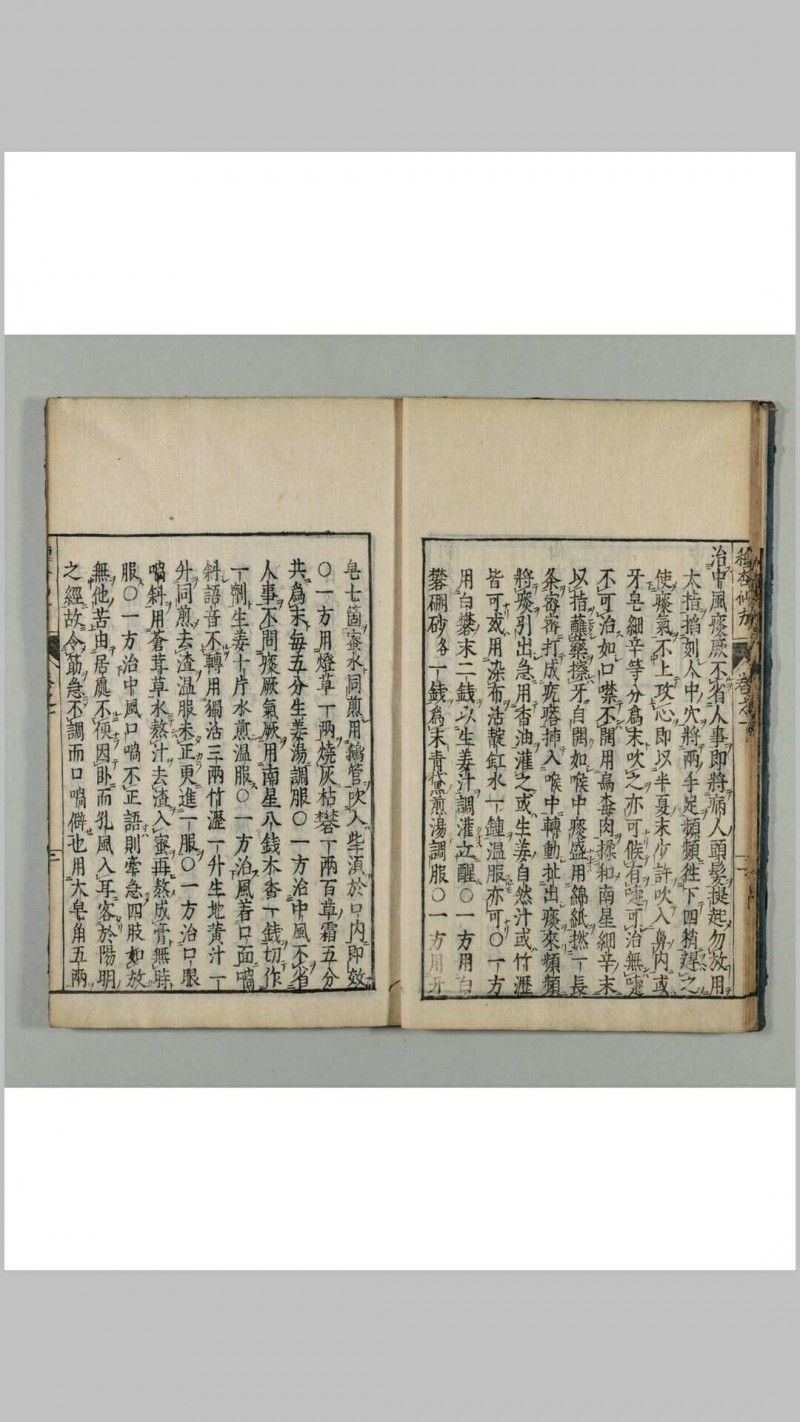 種杏仙方 卷之一
治中風痰厥不省人事即將病人頭髮提起勿放用
大指掐刻人中穴將兩手足頻頻往下四稍趕之
使痰氣不上攻心即以半夏末少許吹入鼻內或
牙皂細辛等分為末吹之亦可候有嚏可治無嚏
不可治如口噤不開用烏梅肉揉和南星細辛末
以指蘸藥擦牙自開如喉中痰盛用綿紙撚一長
条密密打成疙瘩揷入喉中轉動扯出痰來頻頻
將痰引出急用香油灌之或生姜自然汁或竹瀝
皆可或用染布活靛缸水一鍾温服亦可〇一方
用白礬末二錢以生姜汁調灌立醒〇一方用白
礬硼砂各一錢爲末青黛煎湯調服〇一方用牙
皂七箇蜜水同煎用鵝管吹入些須於口內即效
〇一方用燈草一兩燒灰枯礬一兩百草霜五分
共為末每五分生姜湯調服〇一方治中風不省
人事不問痰厥氣厥用南星八錢木香一錢切作
一劑生姜十片水煎温服〇一方治風着口面喎
斜語音不轉用獨活三兩竹瀝一升生地黃汁一
升同煎去渣温服未正更進一服〇一方治口眼
喎斜用蒼茸草水熬汁去渣入蜜再熬成膏無時
服〇一方治中風口喎不正語則牽急四肢如故
無他苦由居處不便因臥而孔風入耳客於陽明
之經故令筋急不調而口喎僻也用大皂角五兩